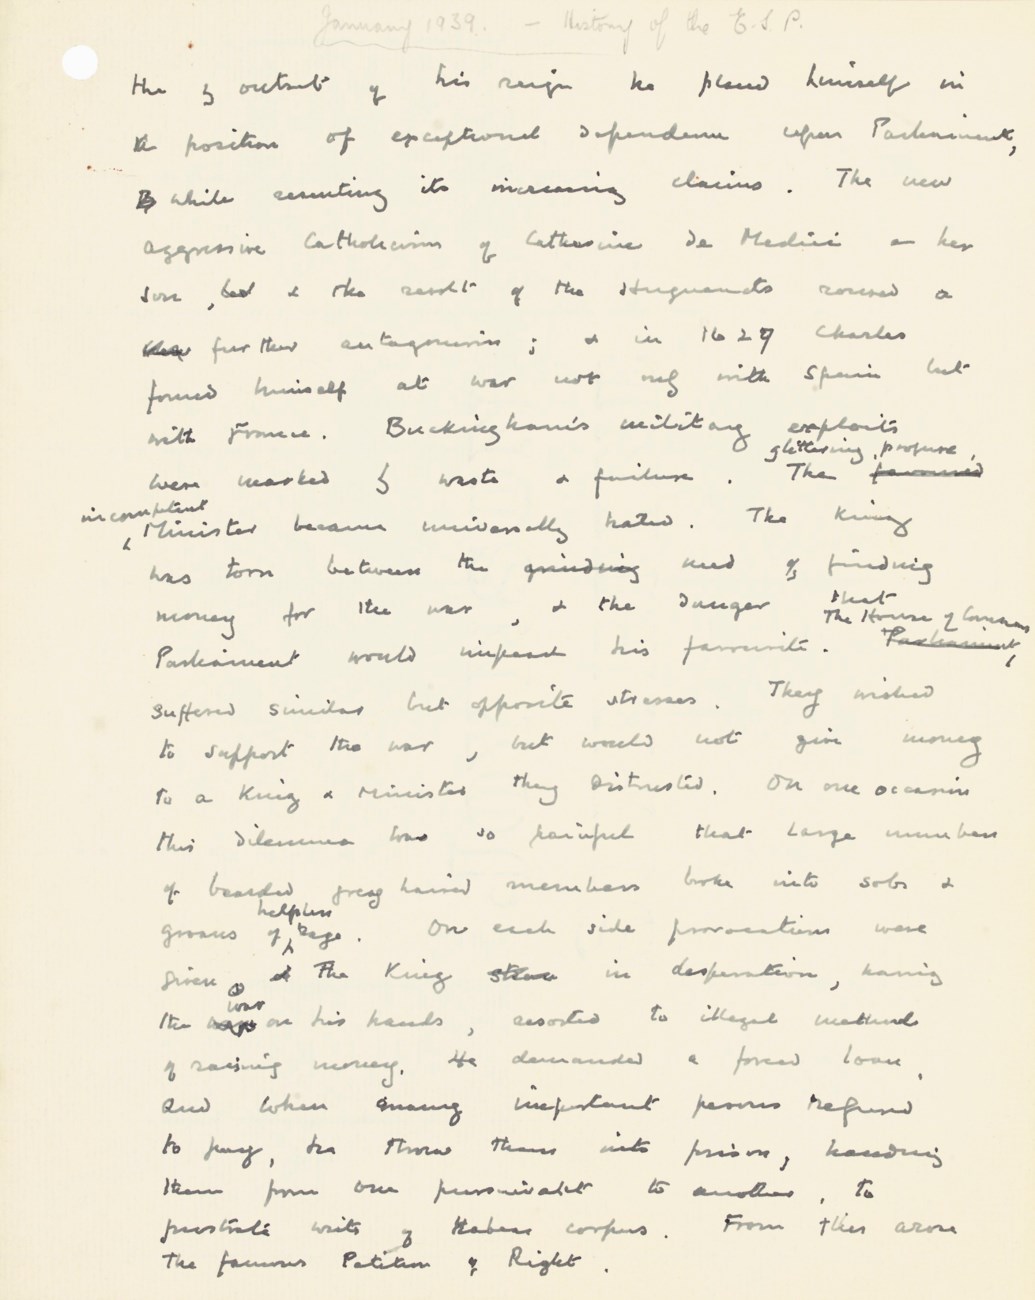 January 1939. – History of the E.S.P.
the outset of his reign he placed himself in
a position of exceptional dependence upon Parliament,
while resenting its increasing claims. The new
aggressive Catholicism of Catherine de Medici & her
son, led & the revolt of the Huguenots roused a
further antagonism; & in 1627 Charles
found himself at war not only with Spain but
with France. Buckingham's military exploits
glittering, profuse,
were marked by waste & failure. The favoured
incompetent
Minister became universally hated. The King
was torn between the grinding need of finding
money for the war, & the danger that
The House of Commons
Parliament would impeach his favourite. Parliament,
suffered similar but opposite stresses. They wished
to support the war, but would not give money
to a King & Minister they distrusted. On one occasion
this dilemma was so painful that large numbers
of bearded grey haired members broke into sobs &
helpless
groans of rage. On each side provocations were
given & The King in desperation, having
war
the on his hands, resorted to illegal methods
of raising money. He demanded a forced loan,
and when many important persons refused
to pay, he threw them into prison, handing
them from one pursuivant to another, to
frustrate writs of Habeas corpus. From this arose
the famous Petition of Right.